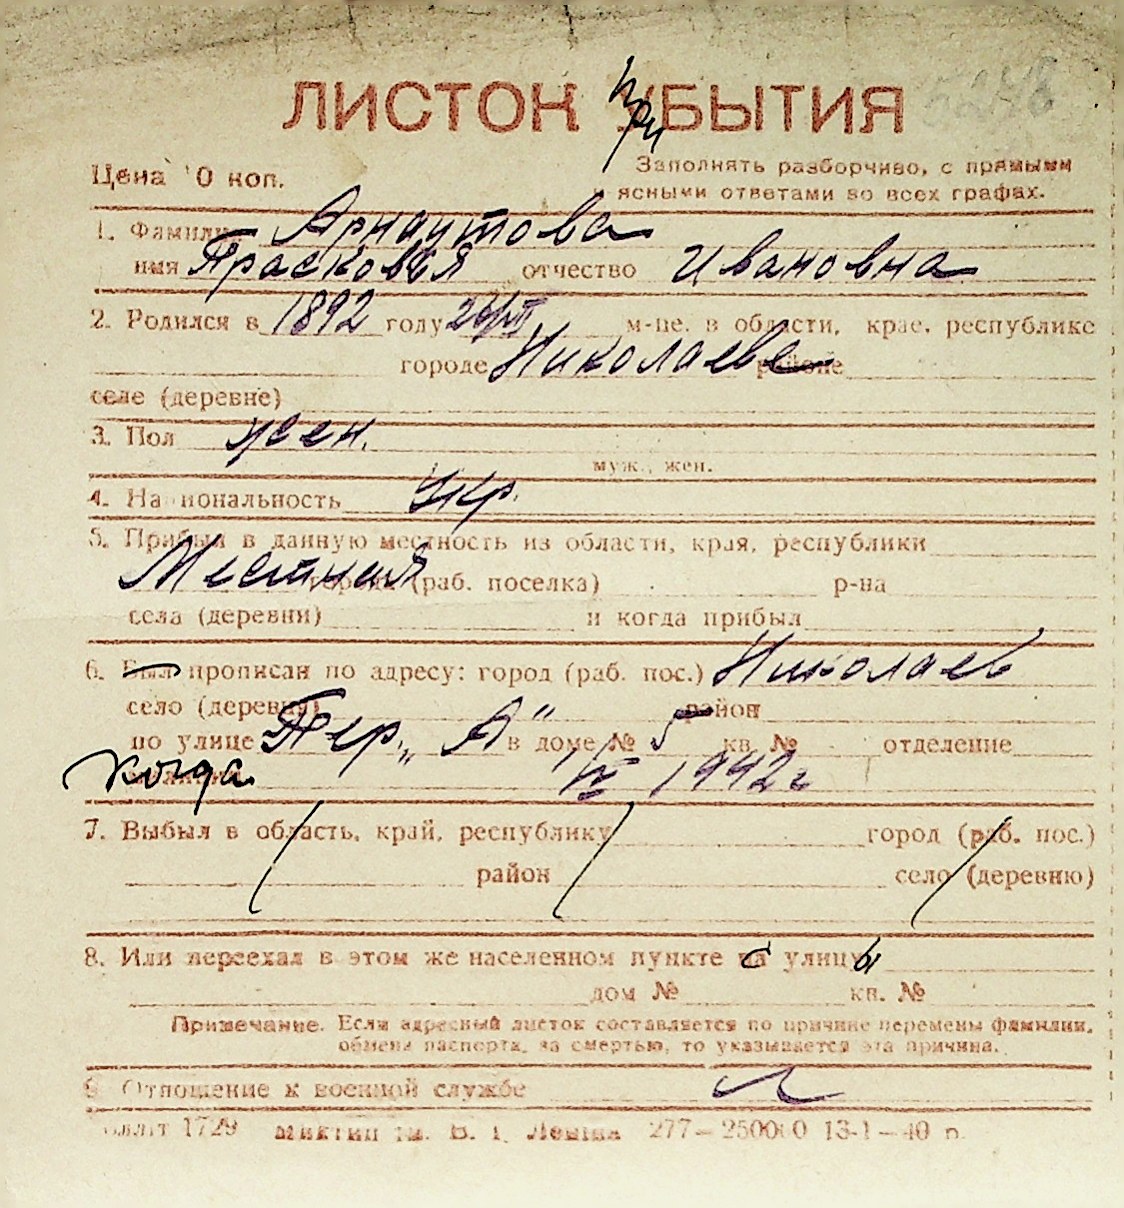 ЛИСТОК ПриБЫТИЯ
Цена 10 коп.
Заполнять разборчиво, с прямыми
ясными ответами во всех графах.
1. Фамилия Арнаутова
имя Прасковья отчество Ивановна
2. Родился в 1892 году м-це. в области, крае, республике
городе Николаеве районе
селе (деревне)
3. Пол жен.
муж., жен.
4. Национальность Укр.
5. Прибыл в данную местность из области, края, республики
Местная города (раб. поселка) р-на
села (деревни) и когда прибыл
6. Был прописан по адресу: город (раб. пос.) Николаев
село (деревня) район
по улице Тер. „А" в доме № 5 кв. № отделение
милиции когда IV 1942 г
7. Выбыл в область, край, республику город (раб. пос.)
район село (деревню)
8. Или переехал в этом же населенном пункте с улицы
дом № кв. №
Примечание. Если адресный листок составляется по причине перемены фамилии,
обмена паспорта, за смертью, то указывается эта причина.
9. Отношение к военной службе
1729 им. В. І. Леніна 277—250000 13-1-40 р.